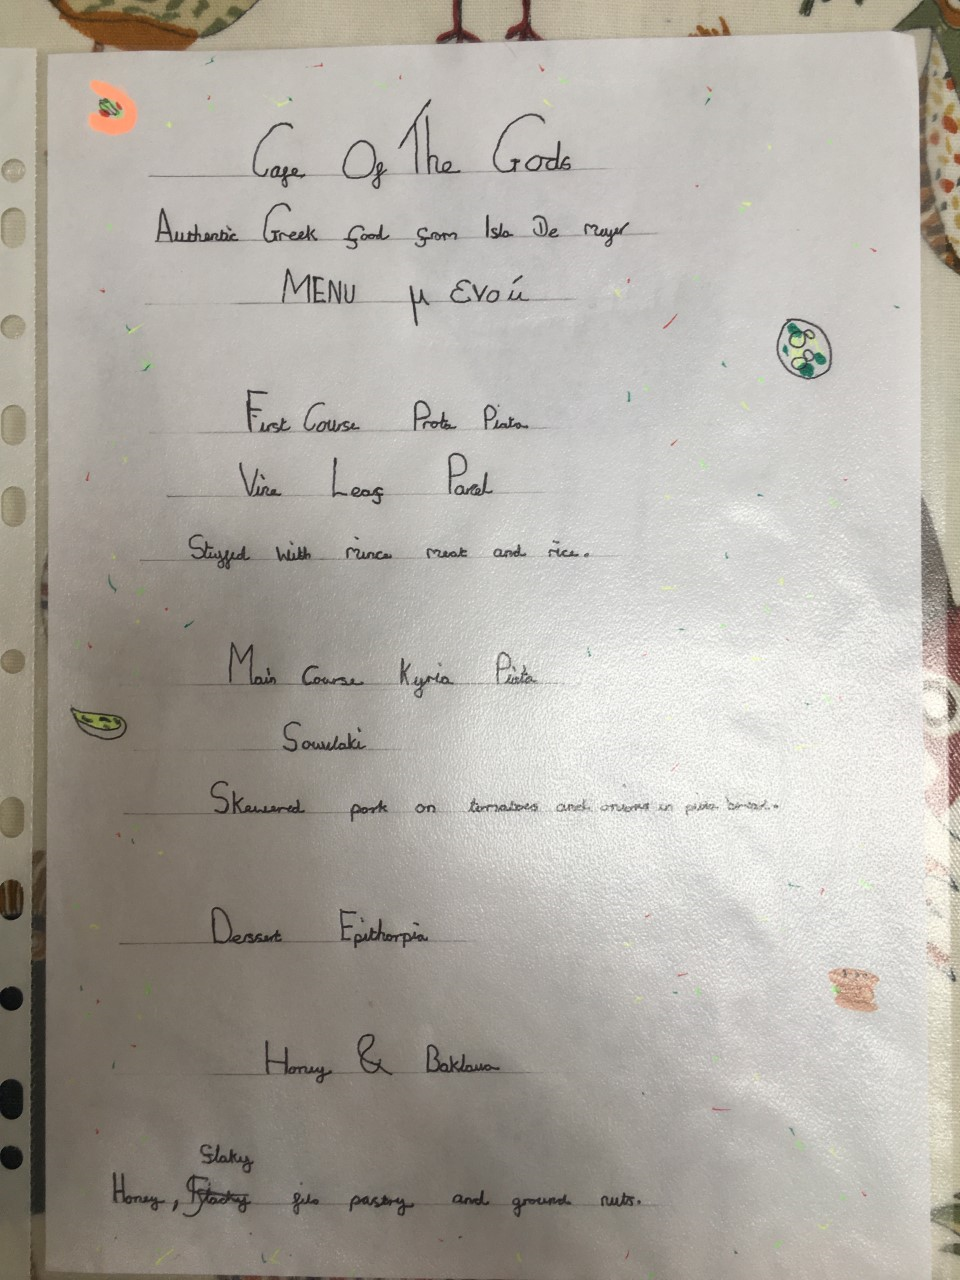 Cafe Of The Gods
Authentic Greek food from Isla De muyer
MENU μ ενού
First Course Prota Piata
Vine Leaf Parcel
Stuffed with mince meat and rice.
Main Course Kyria Piata
Souvlaki
Skewered pork on tomatoes and onions in pitta bread.
Dessert Epithorpia
Honey & Baklava
flaky
Honey, filo pastry and ground nuts.